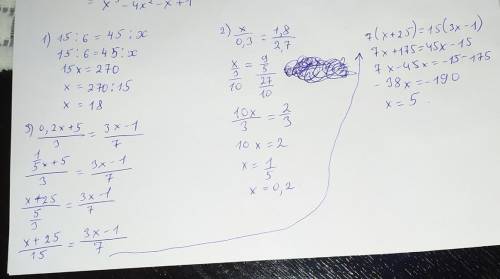 x³ - 4x² - x + 1
1) 15 : 6 = 45 : x
15 : 6 = 45 : x
15x = 270
x = 270 : 15
x = 18
2) x/0,3 = 1,8/2,7
x/(3/10) = (9/5)/(27/10)
10x/3 = 2/3
10x = 2
x = 1/5
x = 0,2
3) (0,2x+5)/3 = (3x-1)/7
(1/5x+5)/3 = (3x-1)/7
(x+25)/5/3 = (3x-1)/7
(x+25)/15 = (3x-1)/7
7(x+25) = 15(3x-1)
7x+175 = 45x-15
7x-45x = -15-175
-38x = -190
x = 5